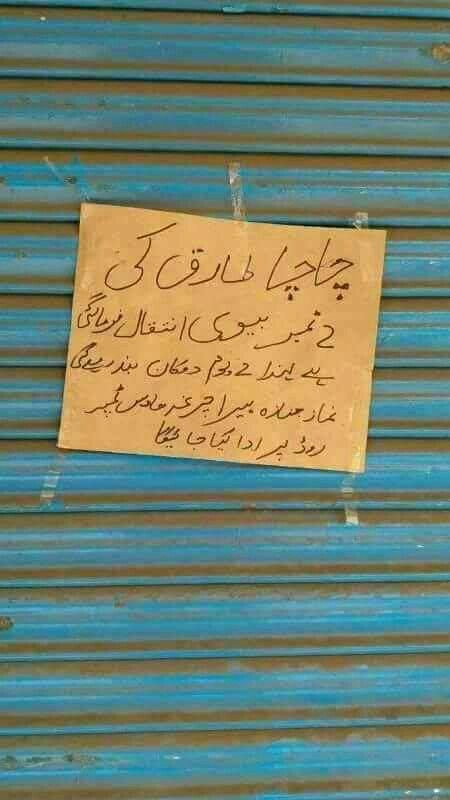 چاچا طارق کی
2 نمبر بیوی انتقال فرماگئی
ہے لہذا 2 یوم دوکان بند رہے گی
نماز جنازہ ہاؤس ٹمبر
روڈ پر ادا کیا جائیگا